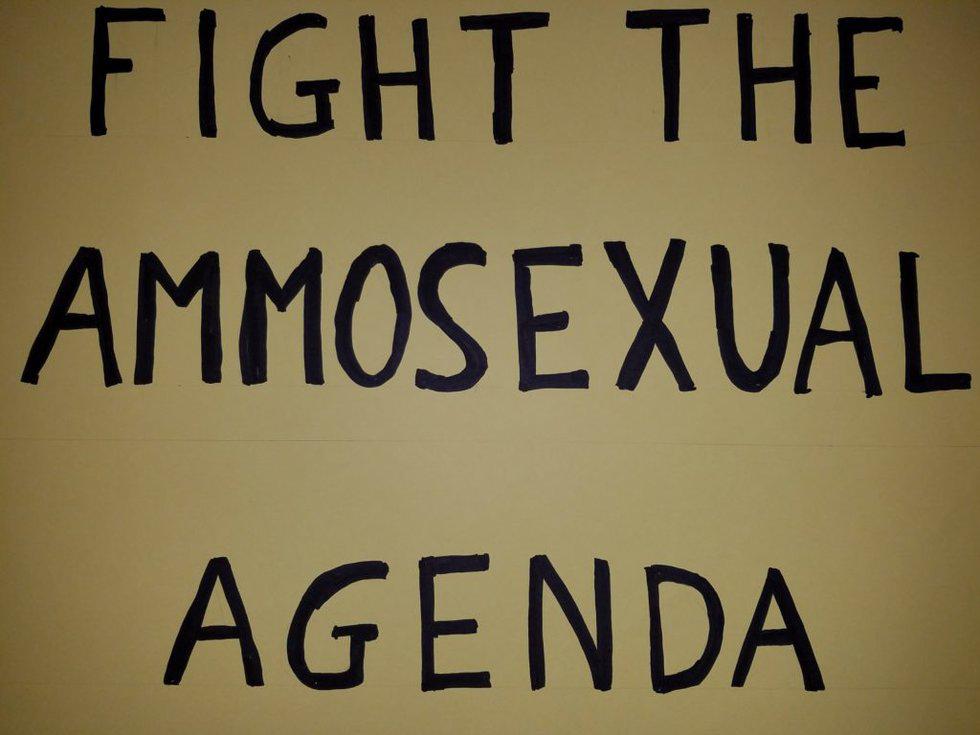 FIGHT THE
AMMOSEXUAL
AGENDA